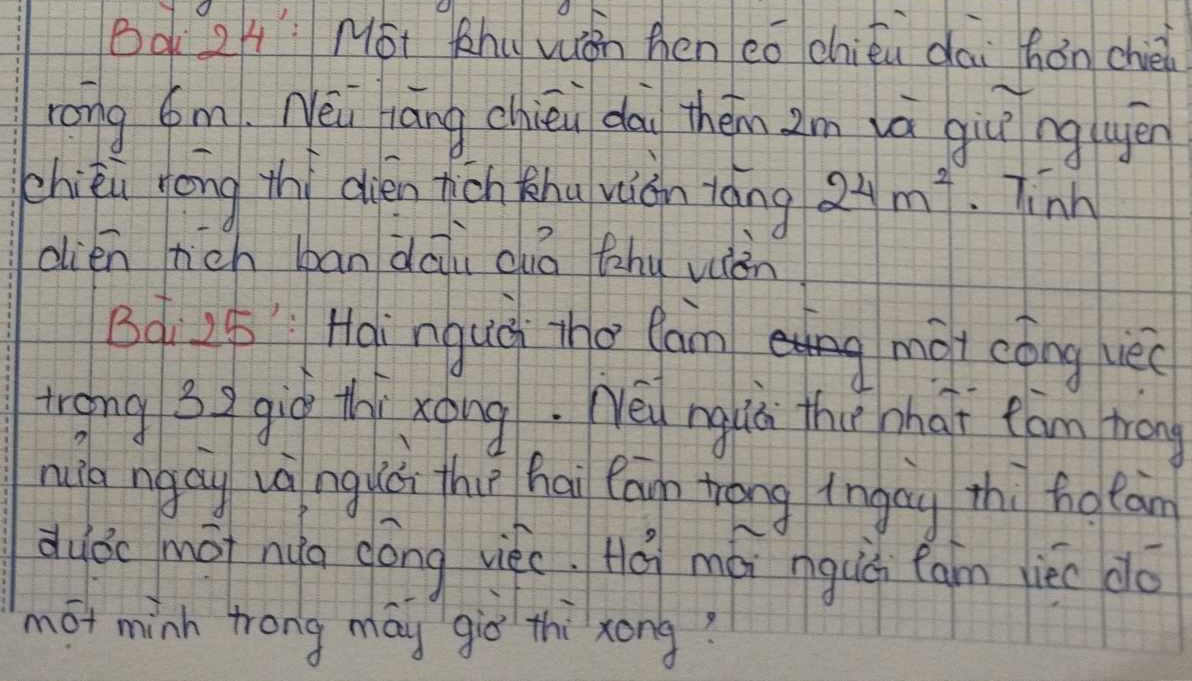 Bài 24': Một khu vườn hcn có chiều dài hơn chiều
rộng 6m. Nếu tăng chiều dài thêm 2m và giữ nguyên
chiều rộng thì diện tích khu vườn tăng 24 m². Tính
diện tích ban đầu của khu vườn
Bài 25': Hai người thợ làm một công việc
trong 32 giờ thì xong. Nếu người thứ nhất làm trong
nửa ngày và người thứ hai làm trong 1 ngày thì họ làm
được một nửa công việc. Hỏi mỗi người làm việc đó
một mình trong mấy giờ thì xong?